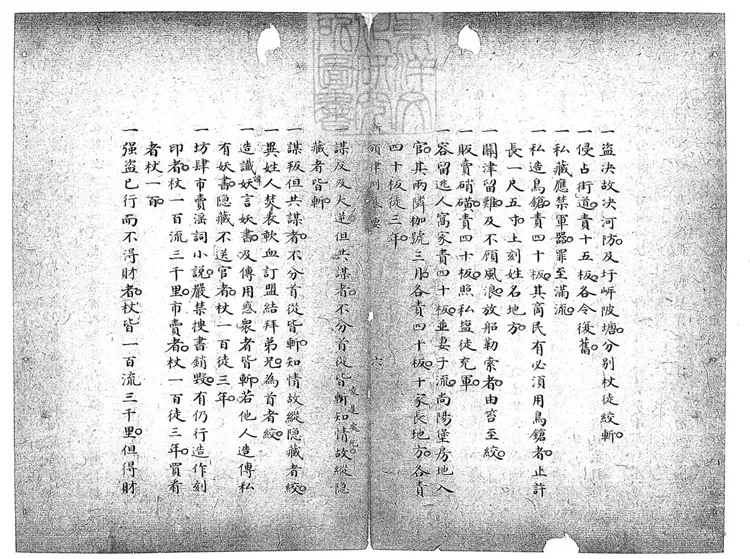 一盜決故決河防及圩岸陂塘分別杖徒絞斬
一侵占街道責十五板各令復舊
一私藏應禁軍器罪至滿流
一私造鳥鎗責四十板其商民有必須用鳥鎗者止許
長一尺五寸上刻姓名地方
一關津留難及不顧風浪放船勒索者由笞至絞
一販賣硝磺責四十板照私鹽徒充軍
一容留逃人窩家責四十板並妻子流尚陽堡房地入
官其兩隣枷號三月各責四十板十家長地方各責
四十板徒三年
律例
六
一謀反及大逆但共謀者不分首從皆斬知情故縱隱
藏者皆斬
一謀叛但共謀者不分首從皆斬知情故縱隱藏者絞
一異姓人焚表歃血訂盟結拜弟兄為首者絞
一造讖妖言妖書及傳用惑衆者皆斬若他人造傳私
有妖書隱藏不送官者杖一百徒三年
一坊肆市賣淫詞小說嚴禁搜書銷毀有仍行造作刻
印者杖一百流三千里市賣者杖一百徒三年買看
者杖一百
一强盜已行而不得財者杖皆一百流三千里但得財